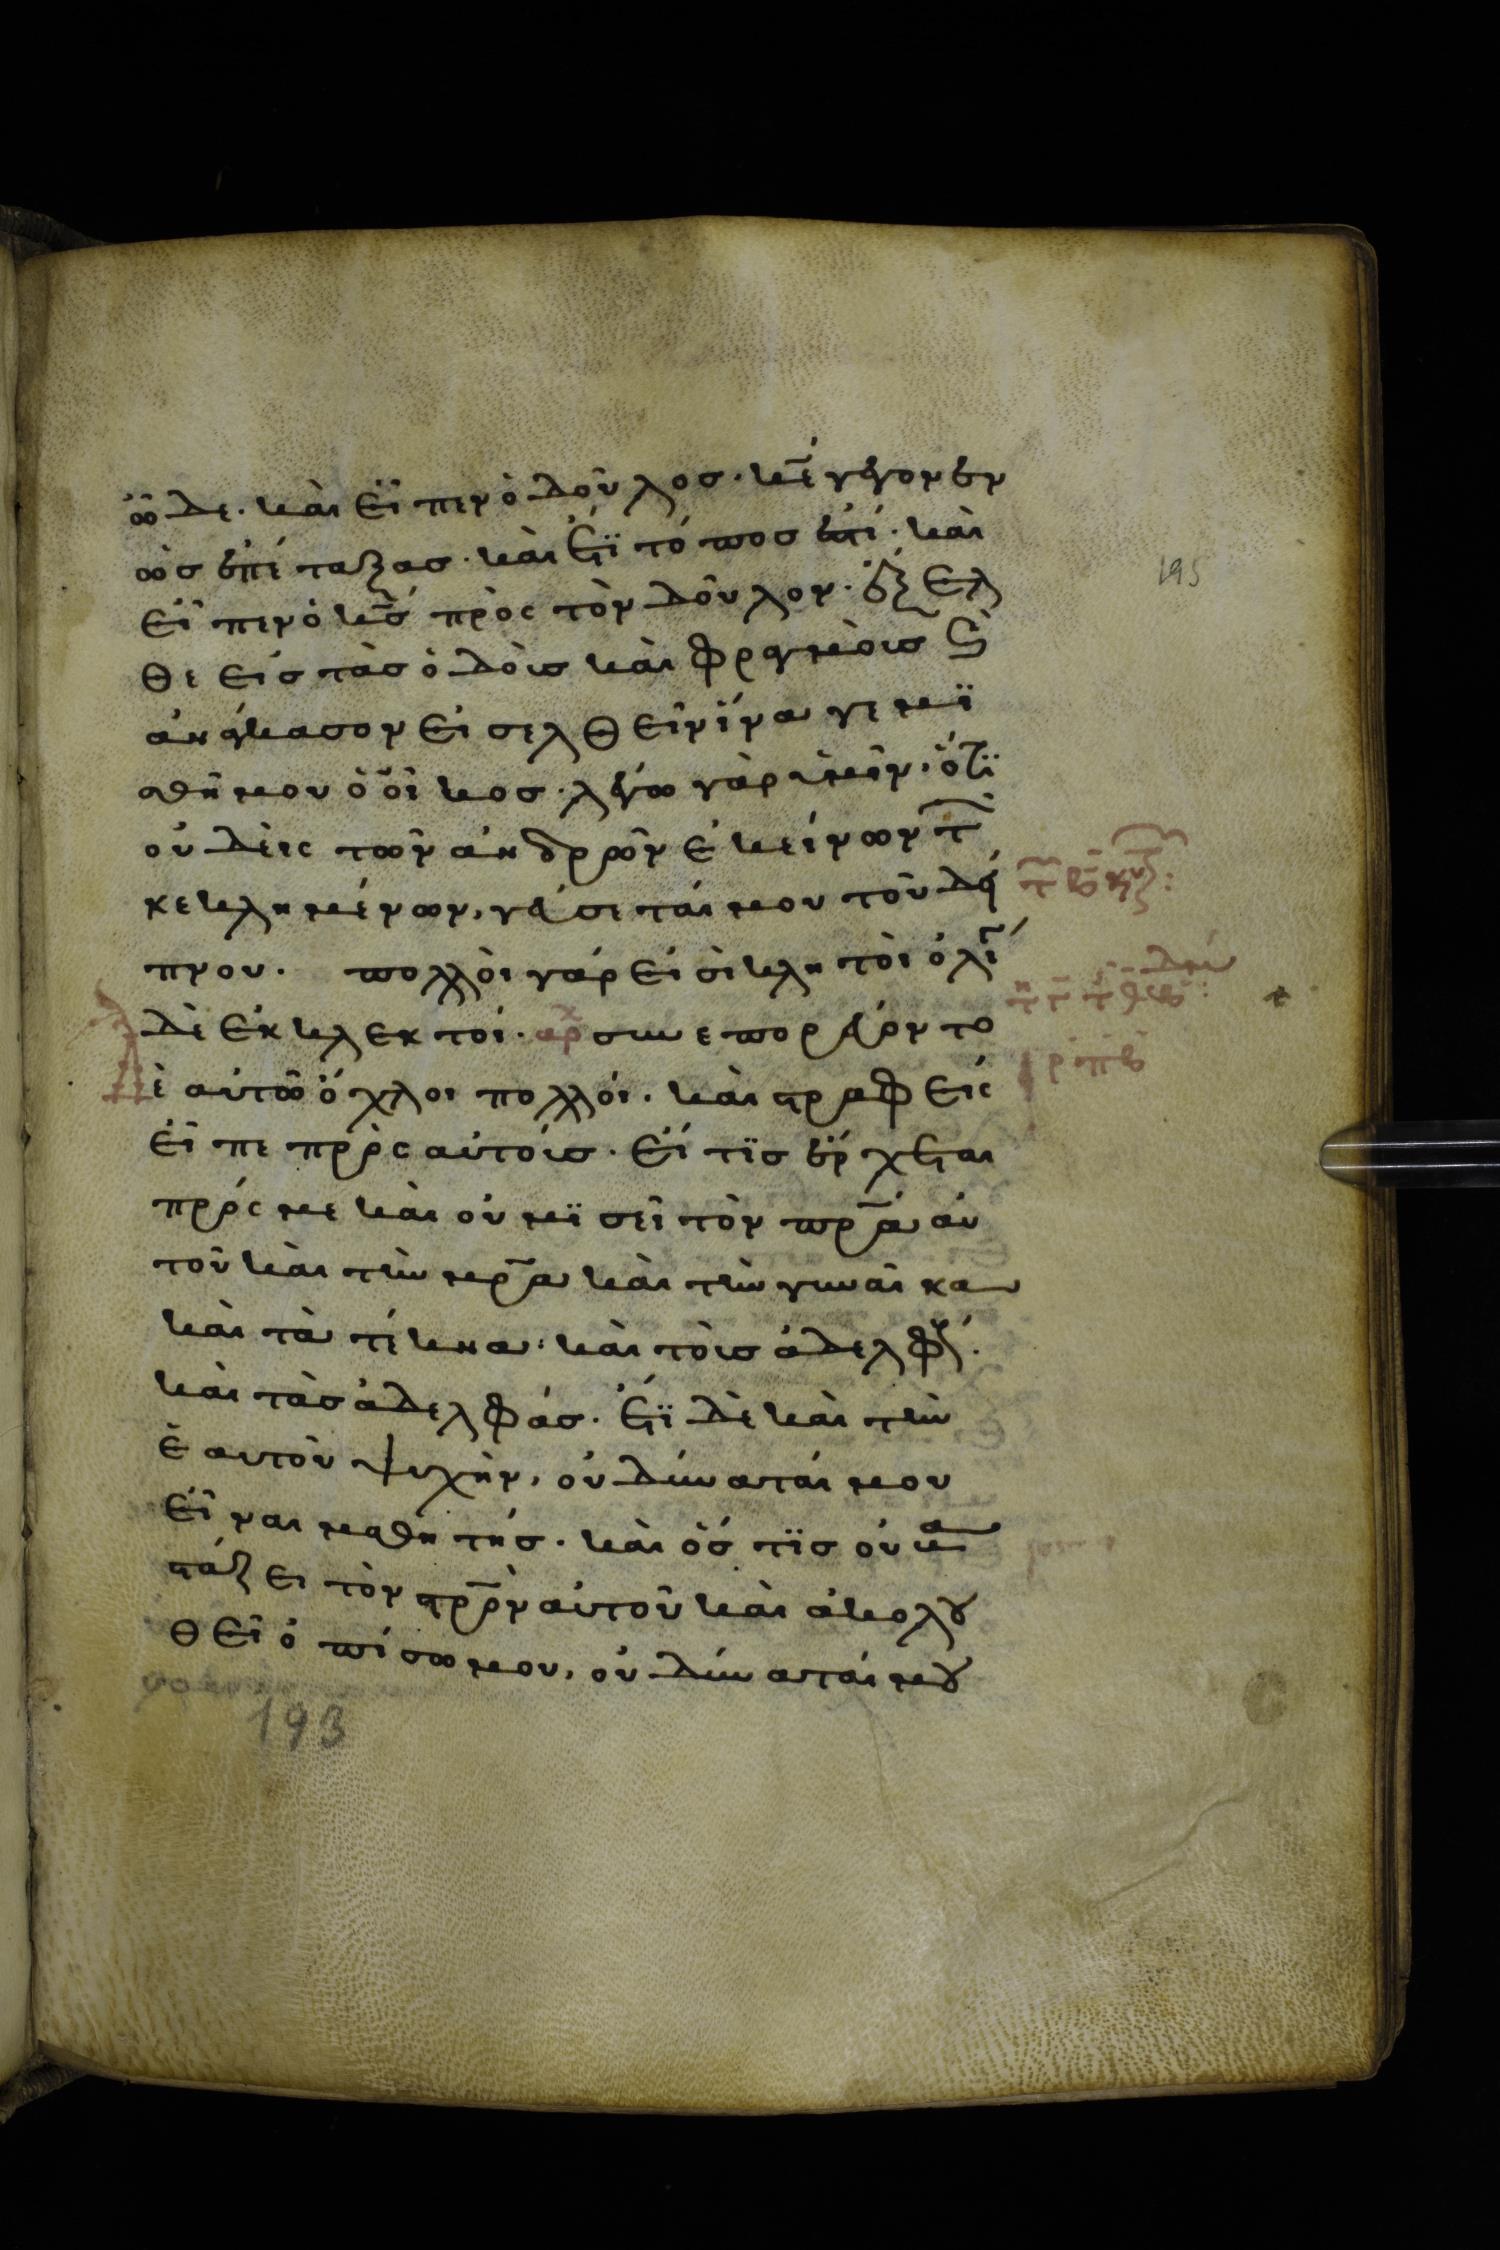 ὧδε. καὶ εἶπεν ὁ δοῦλος. κε̅ γέγονεν
ὡς ἐπέταξας. καὶ ἔτϊ τόπος ἐστί. καὶ
εἶπεν ὁ κς̅ πρὸς τὸν δοῦλον. ἔξελ
θε εἰς τὰς ὁδοὺς καὶ φραγμοὺς καὶ
ἀνάγκασον εἰσελθεῖν ἵνα γεμϊ
σθῆ μου ὁ οἶκος. λέγω γὰρ ὑμῖν. ὅτϊ
οὐδεὶς τῶν ἀνδρῶν ἐκείνων τῶν
κεκλημένων, γεύσεταί μου τοῦ δεί
πνου. πολλοὶ γάρ εἰσι κλητοὶ ὀλίγοι
δὲ ἐκλεκτοί. αρχ συνεπορεύοντο
δὲ αὐτῶ ὄχλοι πολλοί. καὶ στραφεὶς
εἶπε πρὸς αὐτούς. εἴ τϊς ἔρχεται
πρός με καὶ οὐ μϊσεῖ τὸν πρ̅α αὐ
τοῦ καὶ τὴν μρ̅α καὶ τὴν γυναῖκα
καὶ τὰ τέκνα. καὶ τοὺς ἀδελφούς.
καὶ τὰς ἀδελφάς. ἔτϊ δὲ καὶ τὴν
ἑαυτοῦ ψυχὴν, οὐ δύναταί μου
εἶναι μαθητής. καὶ ὅς τϊς οὐ βα
στάζει τὸν στρ̅ὸν αὐτοῦ καὶ ἀκολου
θεῖ ὀπίσω μου, οὐ δύναταί μου
195
193